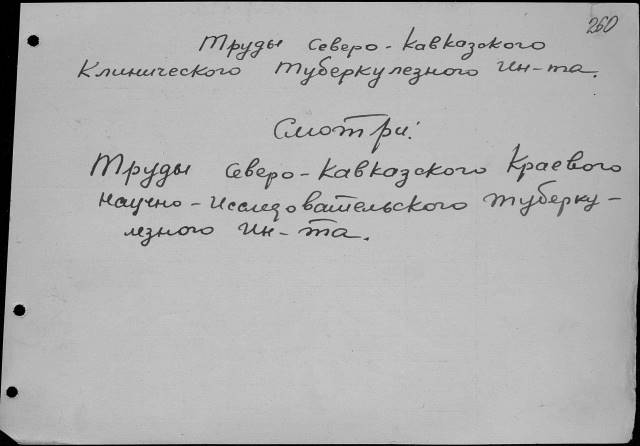 260
Труды Северо-Кавказского
Клинического Туберкулезного Ин-та.
Смотри:
Труды Северо-Кавказского Краевого
Научно-Исследовательского Туберку-
лезного Ин-та.